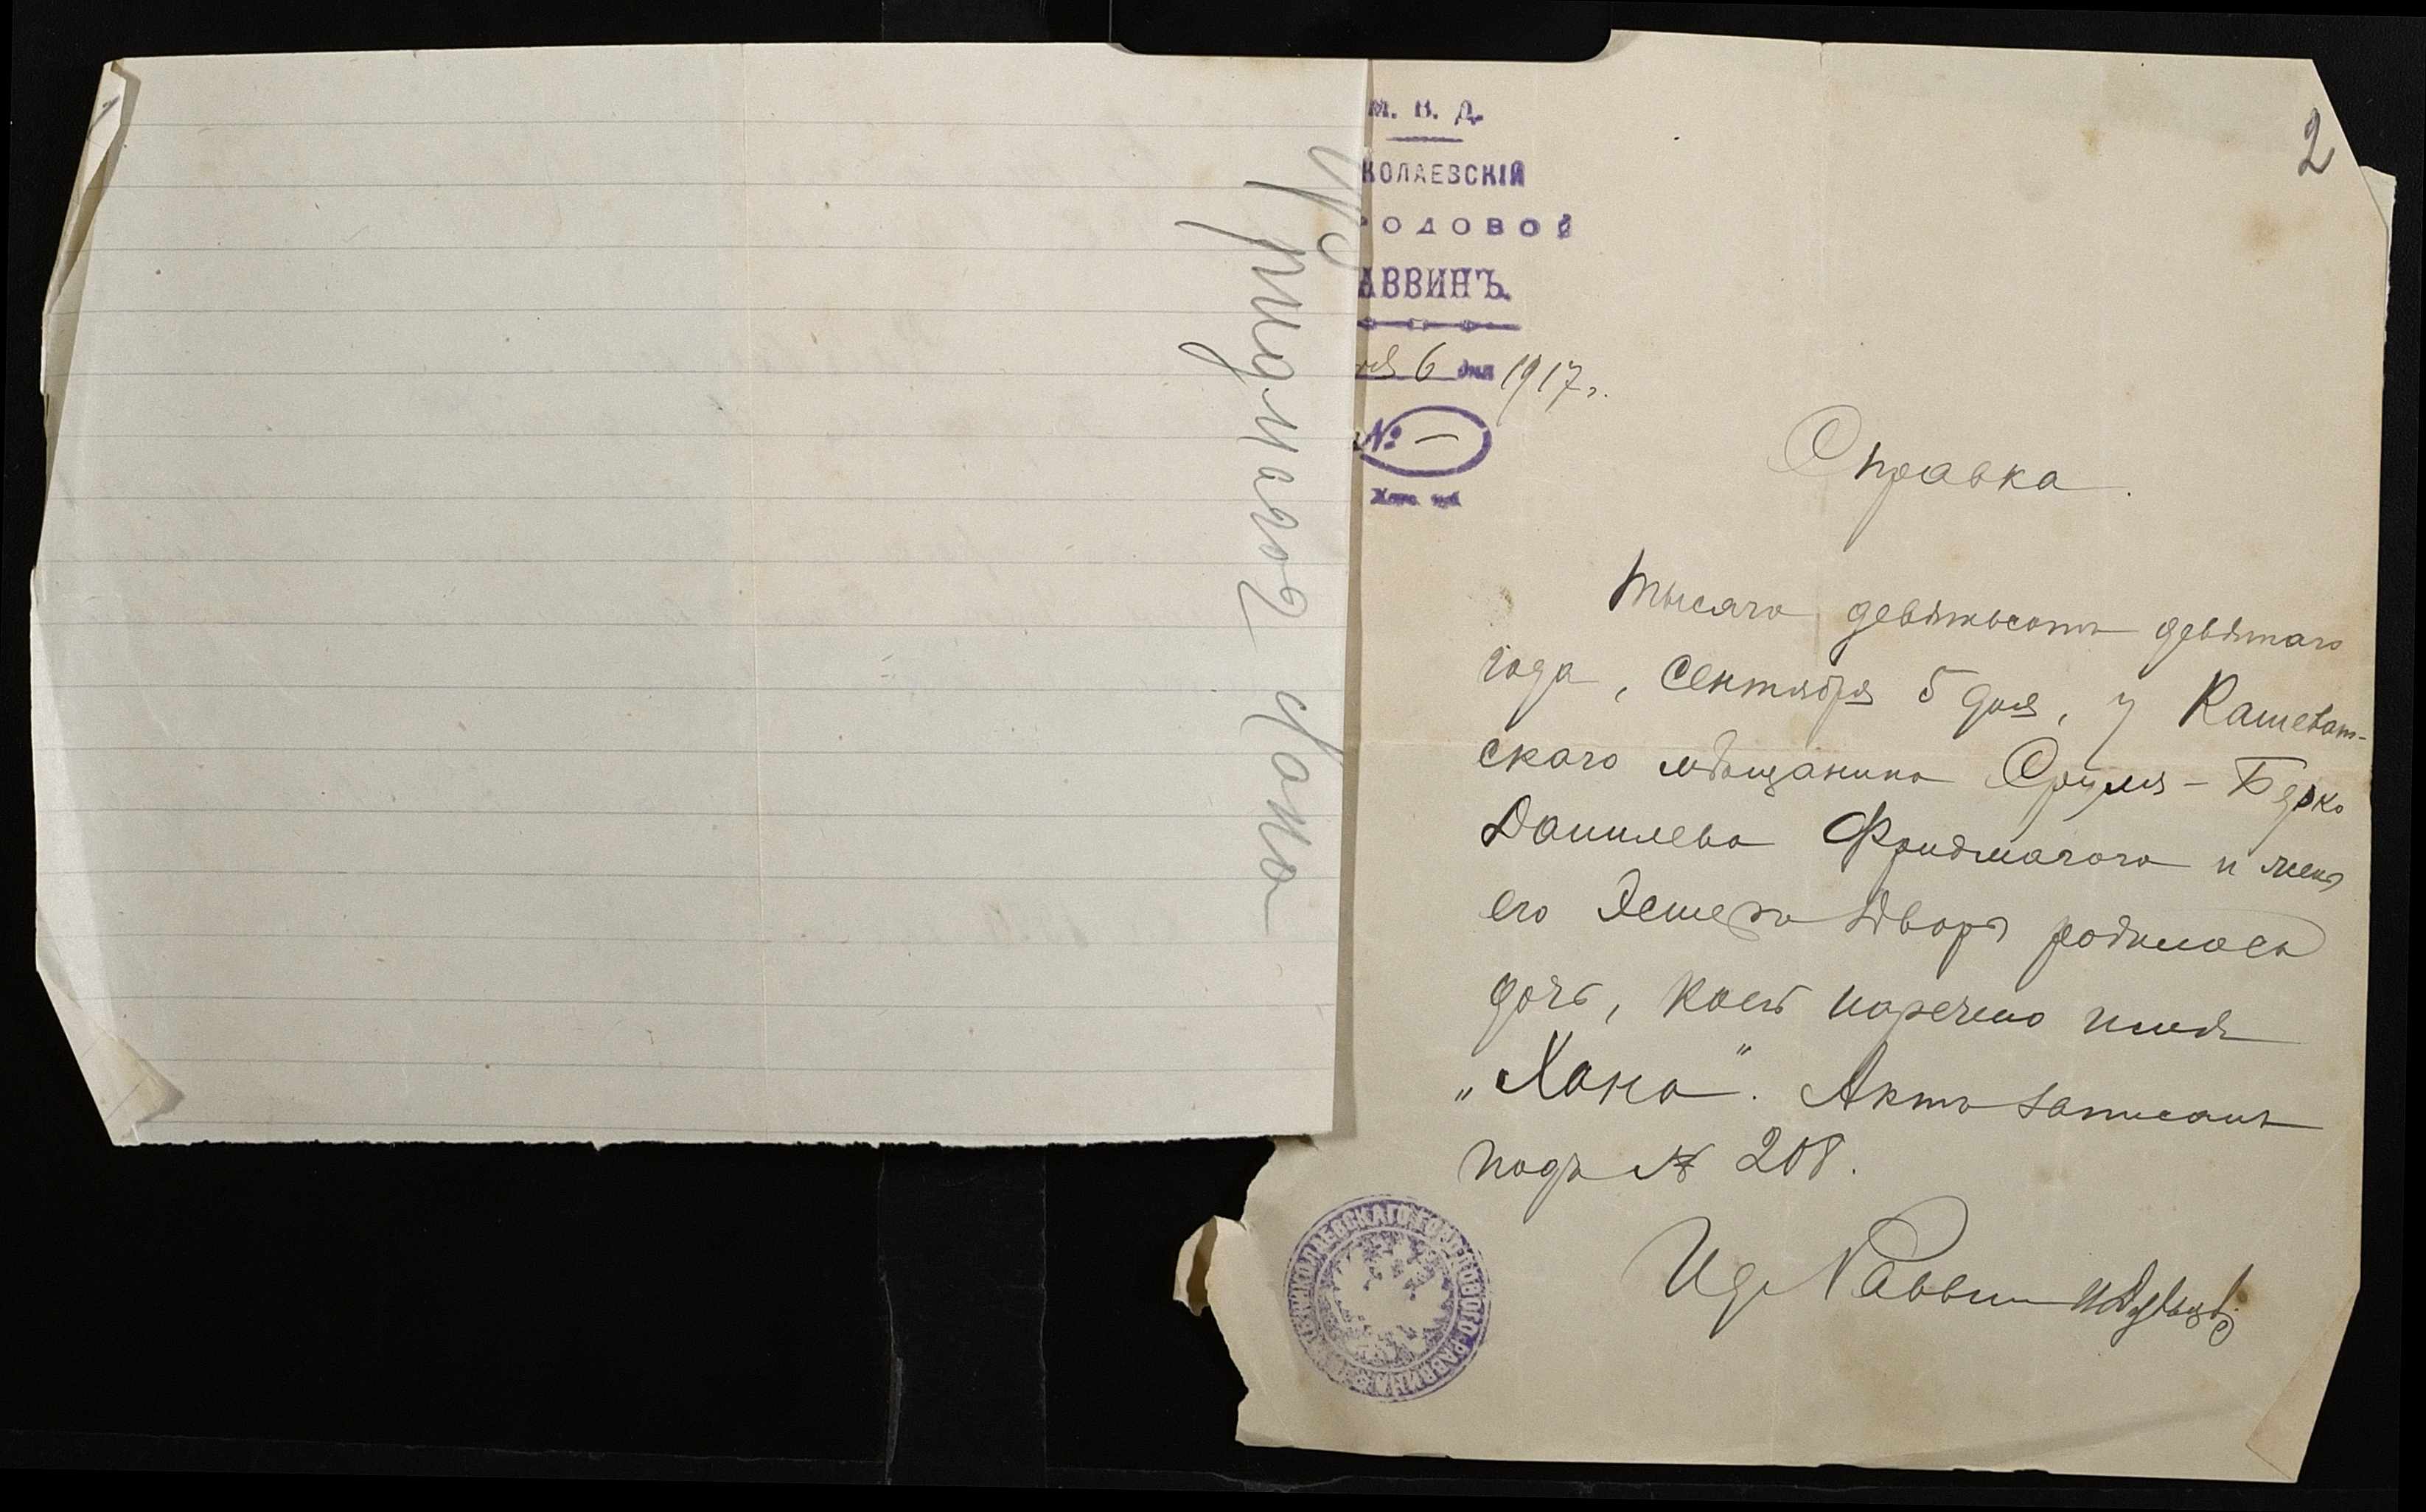 Фридмагоз Хана
М. В. Д.
КОЛАЕВСКІЙ
РОДОВОЙ
АВВИНЪ.
6 дня 1917 г.
№ —
Херс. губ.
2
Справка.
Тысяча девятьсотъ девятаго
года, сентября 5 дня, у Кашеват-
скаго мѣщанина Сруля-Берко
Данилева Фридмагоза и жены
его Эстеръ Двора родилась
дочь, коей наречено имя
„Хана". Актъ записанъ
подъ № 208.
И д. Раввина
НИКОЛАЕВСКАГО ГОРОДОВОГО РАВВИНА